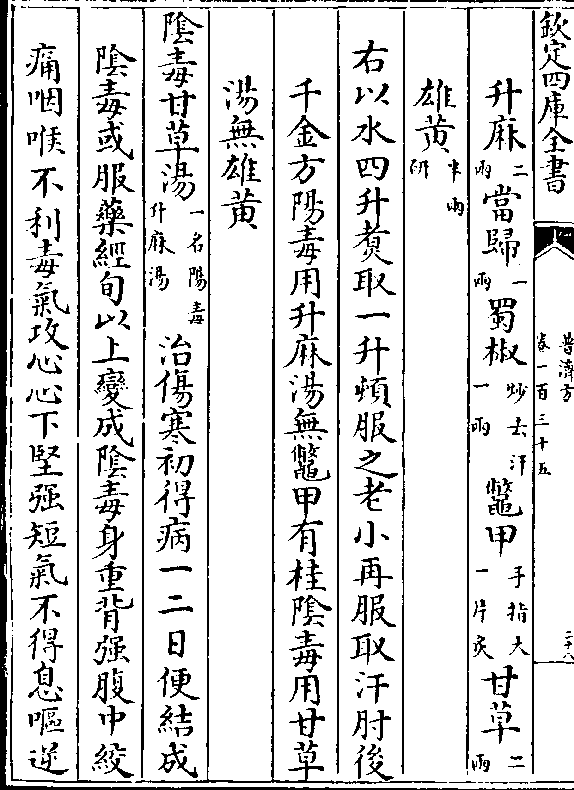 欽定四庫全書
普濟方
卷一百三十五
二十八
升麻二兩 當歸一兩 蜀椒炒去汗一兩 鼈甲手指大一片炙 甘草二兩
雄黃半兩研
右以水四升煑取一升頓服之老小再服取汗肘後
千金方陽毒用升麻湯無鼈甲有桂隂毒用甘草
湯無雄黃
隂毒甘草湯一名陽毒升麻湯 治傷寒初得病一二日便結成
隂毒或服藥經旬以上變成隂毒身重背强腹中絞
痛咽喉不利毒氣攻心心下堅强短氣不得息嘔逆